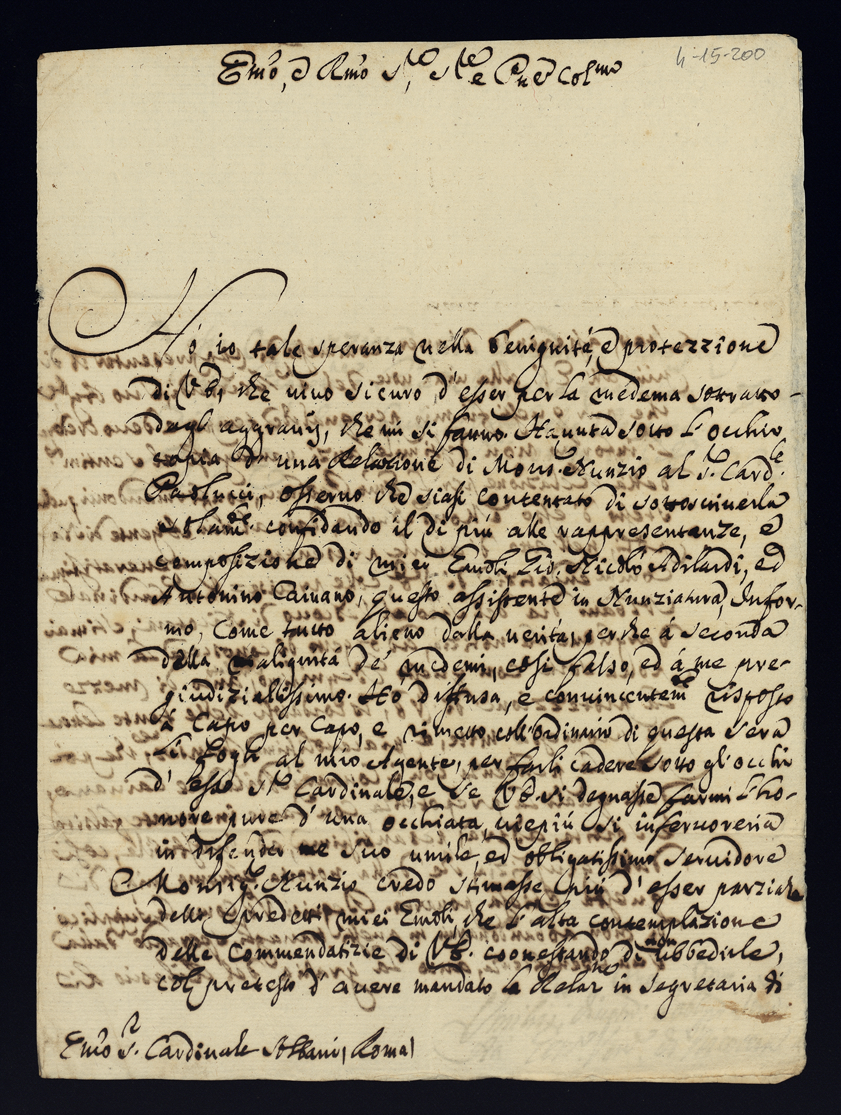 Em̃o, e Rm̃o Sig.re Sig.re e Pñe Col.mo
4-15-200
Hò io tale speranza nella benignità, e protezzione
di V.E., che vivo sicuro d'esser per la medema sottratto
dagl'aggravij, che mi si fanno. Havuta sotto l'occhio
copia d'una Relazione di Mons.r Nunzio al S.r Card.le
Paolucci, osservo che siasi contentato di sottoscriverla
solam.te confidando il di più alle rappresentanze, e
composizione di miei Emoli, Nicolò Adilardi, ed
Antonino Cainano, questo assistente in Nunziatura, Infor-
mo, come tutto alieno dalla verità, perche à seconda
della malignità de' medemi, così falso, ed à me pre-
giudizialissimo. Hò diffusa, e convincentem.te risposto
à Capo per Capo, e rimetto coll'ordinario di questa sera
li fogli al mio Agente, per farli cadere sotto gl'occhi
d'esso S.r Cardinale, e se V.E. si degnasse farmi l'ho-
nore pure d'una occhiata, viepiù si infervoreria
in difender un suo umile, ed obligatissimo servidore
Monsig.r Nunzio credo stimasse più d'esser parziale
delli predetti miei Emoli, che l'alta contemplazione
delle Commendatizie di V.E. coonestando di non ubbedirle,
col pretesto d'avere mandato la Relaz.ne in Segretaria di
Em̃o S.r Cardinale Albani (Roma)